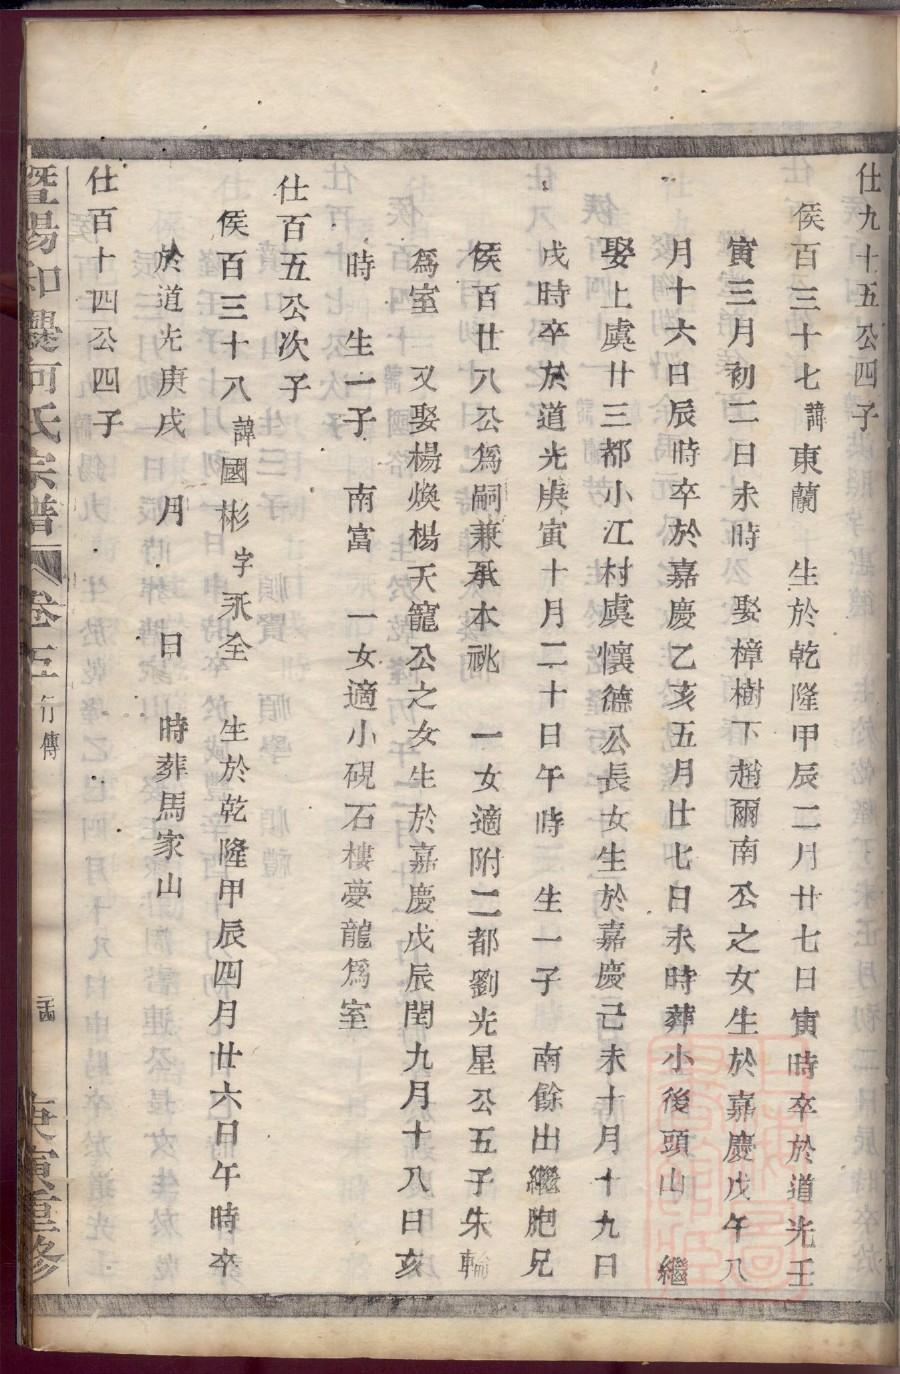 仕九十五公四子
侯百三十七諱東蘭　生於乾隆甲辰二月廿七日寅時卒於道光壬
寅三月初二日未時　娶樟樹下趙爾南公之女生於嘉慶戊午八
月十六日辰時卒於嘉慶乙亥五月廿七日未時葬小後頭山　繼
娶上虞廿三都小江村虞懷德公長女生於嘉慶己未十月十九日
戌時卒於道光庚寅十月二十日午時　生一子　南餘出繼胞兄
侯百廿八公為嗣兼承本祧　一女適附二都劉光星公五子朱輪
為室　又娶楊煥楊天寵公之女生於嘉慶戊辰閏九月十八日亥
時　生一子　南富　一女適小硯石樓夢龍為室
仕百五公次子
侯百三十八諱國彬字永全　生於乾隆甲辰四月廿六日午時卒
於道光庚戌　月　日　時葬馬家山
仕百十四公四子
暨陽和爨何氏宗譜　卷五　行傳　庚寅重修